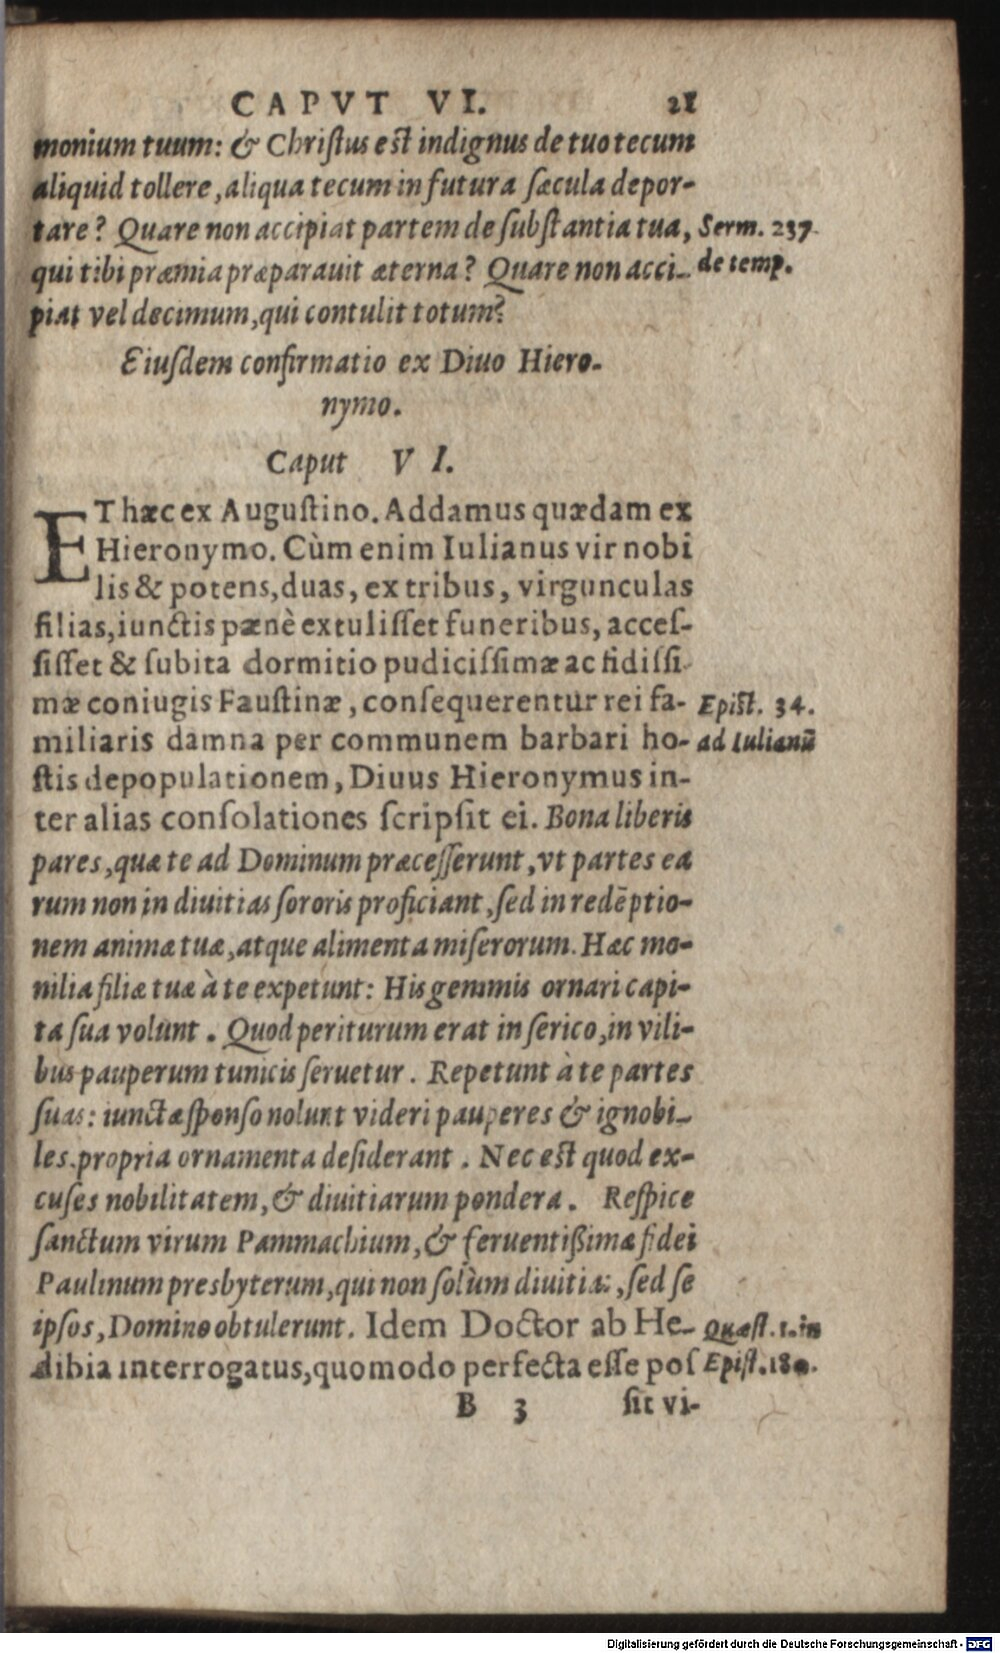 CAPVT VI. 21
monium tuum: & Chriſtus eſt indignus de tuo tecum
aliquid tollere, aliqua tecum in futura ſæcula depor-
tare? Quare non accipiat partem de ſubſtantia tua,
Serm. 237.
qui tibi præmia præparauit æterna? Quare non acci-
de temp.
piat vel decimum, qui contulit totum?
Eiuſdem confirmatio ex Diuo Hiero-
nymo.
Caput V I.
ET hæc ex Auguſtino. Addamus quædam ex
Hieronymo. Cùm enim Iulianus vir nobi
lis & potens, duas, ex tribus, virgunculas
filias, iunctis pænè extuliſſet funeribus, acceſ-
ſiſſet & ſubita dormitio pudiciſſimæ ac fidiſſi-
mæ coniugis Fauſtinæ, conſequerentur rei fa-
Epiſt. 34.
miliaris damna per communem barbari ho-
ad Iulianū
ſtis depopulationem, Diuus Hieronymus in-
ter alias conſolationes ſcripſit ei. Bona liberis
pares, quæ te ad Dominum præceſſerunt, vt partes ea
rum non in diuitias ſororis proficiant, ſed in redēptio-
nem animæ tuæ, atque alimenta miſerorum. Hæc mo-
nilia filiæ tuæ à te expetunt: His gemmis ornari capi-
ta ſua volunt. Quod periturum erat in ſerico, in vili-
bus pauperum tunicis ſeruetur. Repetunt à te partes
ſuas: iunctæ ſponſo nolunt videri pauperes & ignobi-
les. propria ornamenta deſiderant. Nec eſt quod ex-
cuſes nobilitatem, & diuitiarum pondera. Reſpice
ſanctum virum Pammachium, & feruentißimæ fidei
Paulinum presbyterum, qui non ſolùm diuitias, ſed ſe
ipſos, Domino obtulerunt. Idem Doctor ab He-
Quæſt. 1. in
dibia interrogatus, quomodo perfecta eſſe poſ
Epiſt. 180.
B 3 ſit vi-
Digitalisierung gefördert durch die Deutsche Forschungsgemeinschaft - DFG